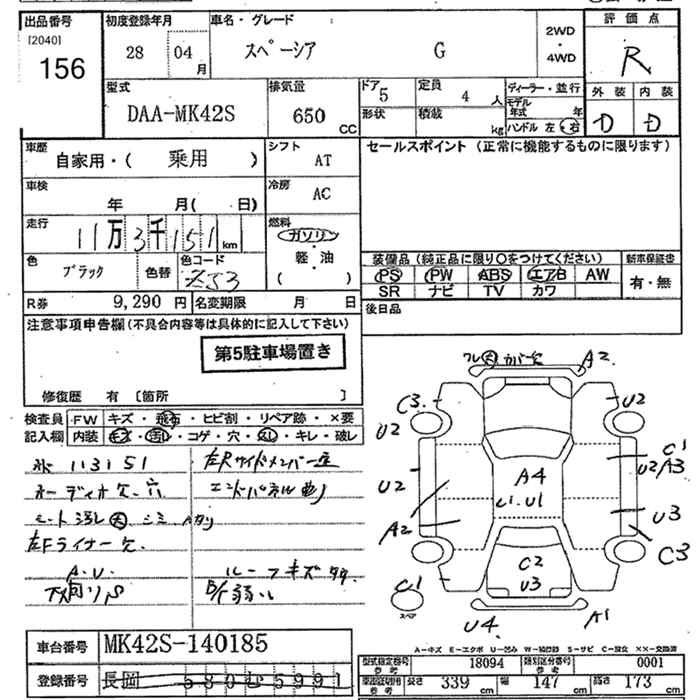 出品番号 初度登録年月 車名・グレード 評価点
[2040] 156 28 04月 スペーシア G 2WD・4WD R
外装 内装
D D
型式 排気量 ドア 定員 ディーラー・並行
DAA-MK42S 650 CC 5 4人 モデル年式 年
形状 積載 kg ハンドル 左・右
車歴 シフト セールスポイント (正常に機能するものに限ります)
自家用・( 乗用 ) AT
車検 冷房
年 月( 日) AC
走行 燃料
11万3千151km ガソリン
軽・油
( )
色 色コード 装備品 (純正品に限り○をつけてください) 新車保証書
ブラック 色替 ZJ3 PS PW ABS エアB AW 有・無
SR ナビ TV カワ
R券 9,290円 名変期限 月 日 後日品
注意事項申告欄(不具合内容等は具体的に記入して下さい)
第5駐車場置き
修復歴 有 [箇所 ]
検査員 FW キズ・飛石・ヒビ割・リペア跡・×要
記入欄 内装 キズ・汚れ・コゲ・穴・スレ・キレ・破レ
113151 左Rサイドメンバー
オーディオ欠.穴 エンドパネル曲り
シート汚レ 大 シミ
左Fライナー欠. ルーフキズ
下廻りS
大 カバー欠 A2
C3 U2
U2 C1
U2/A3
U2 A4
U1 U3
A2 C3
C2
U3
C1
スペア
U4 A1
A-キズ E-エクボ U-凹み W-補修跡 S-サビ C-腐食 ××-交換済
車台番号 MK42S-140185
型式指定番号 参考 18094 類別区分番号 参考 0001
登録番号 長岡 580む5991
長さ 339cm 幅 147cm 高さ 173cm